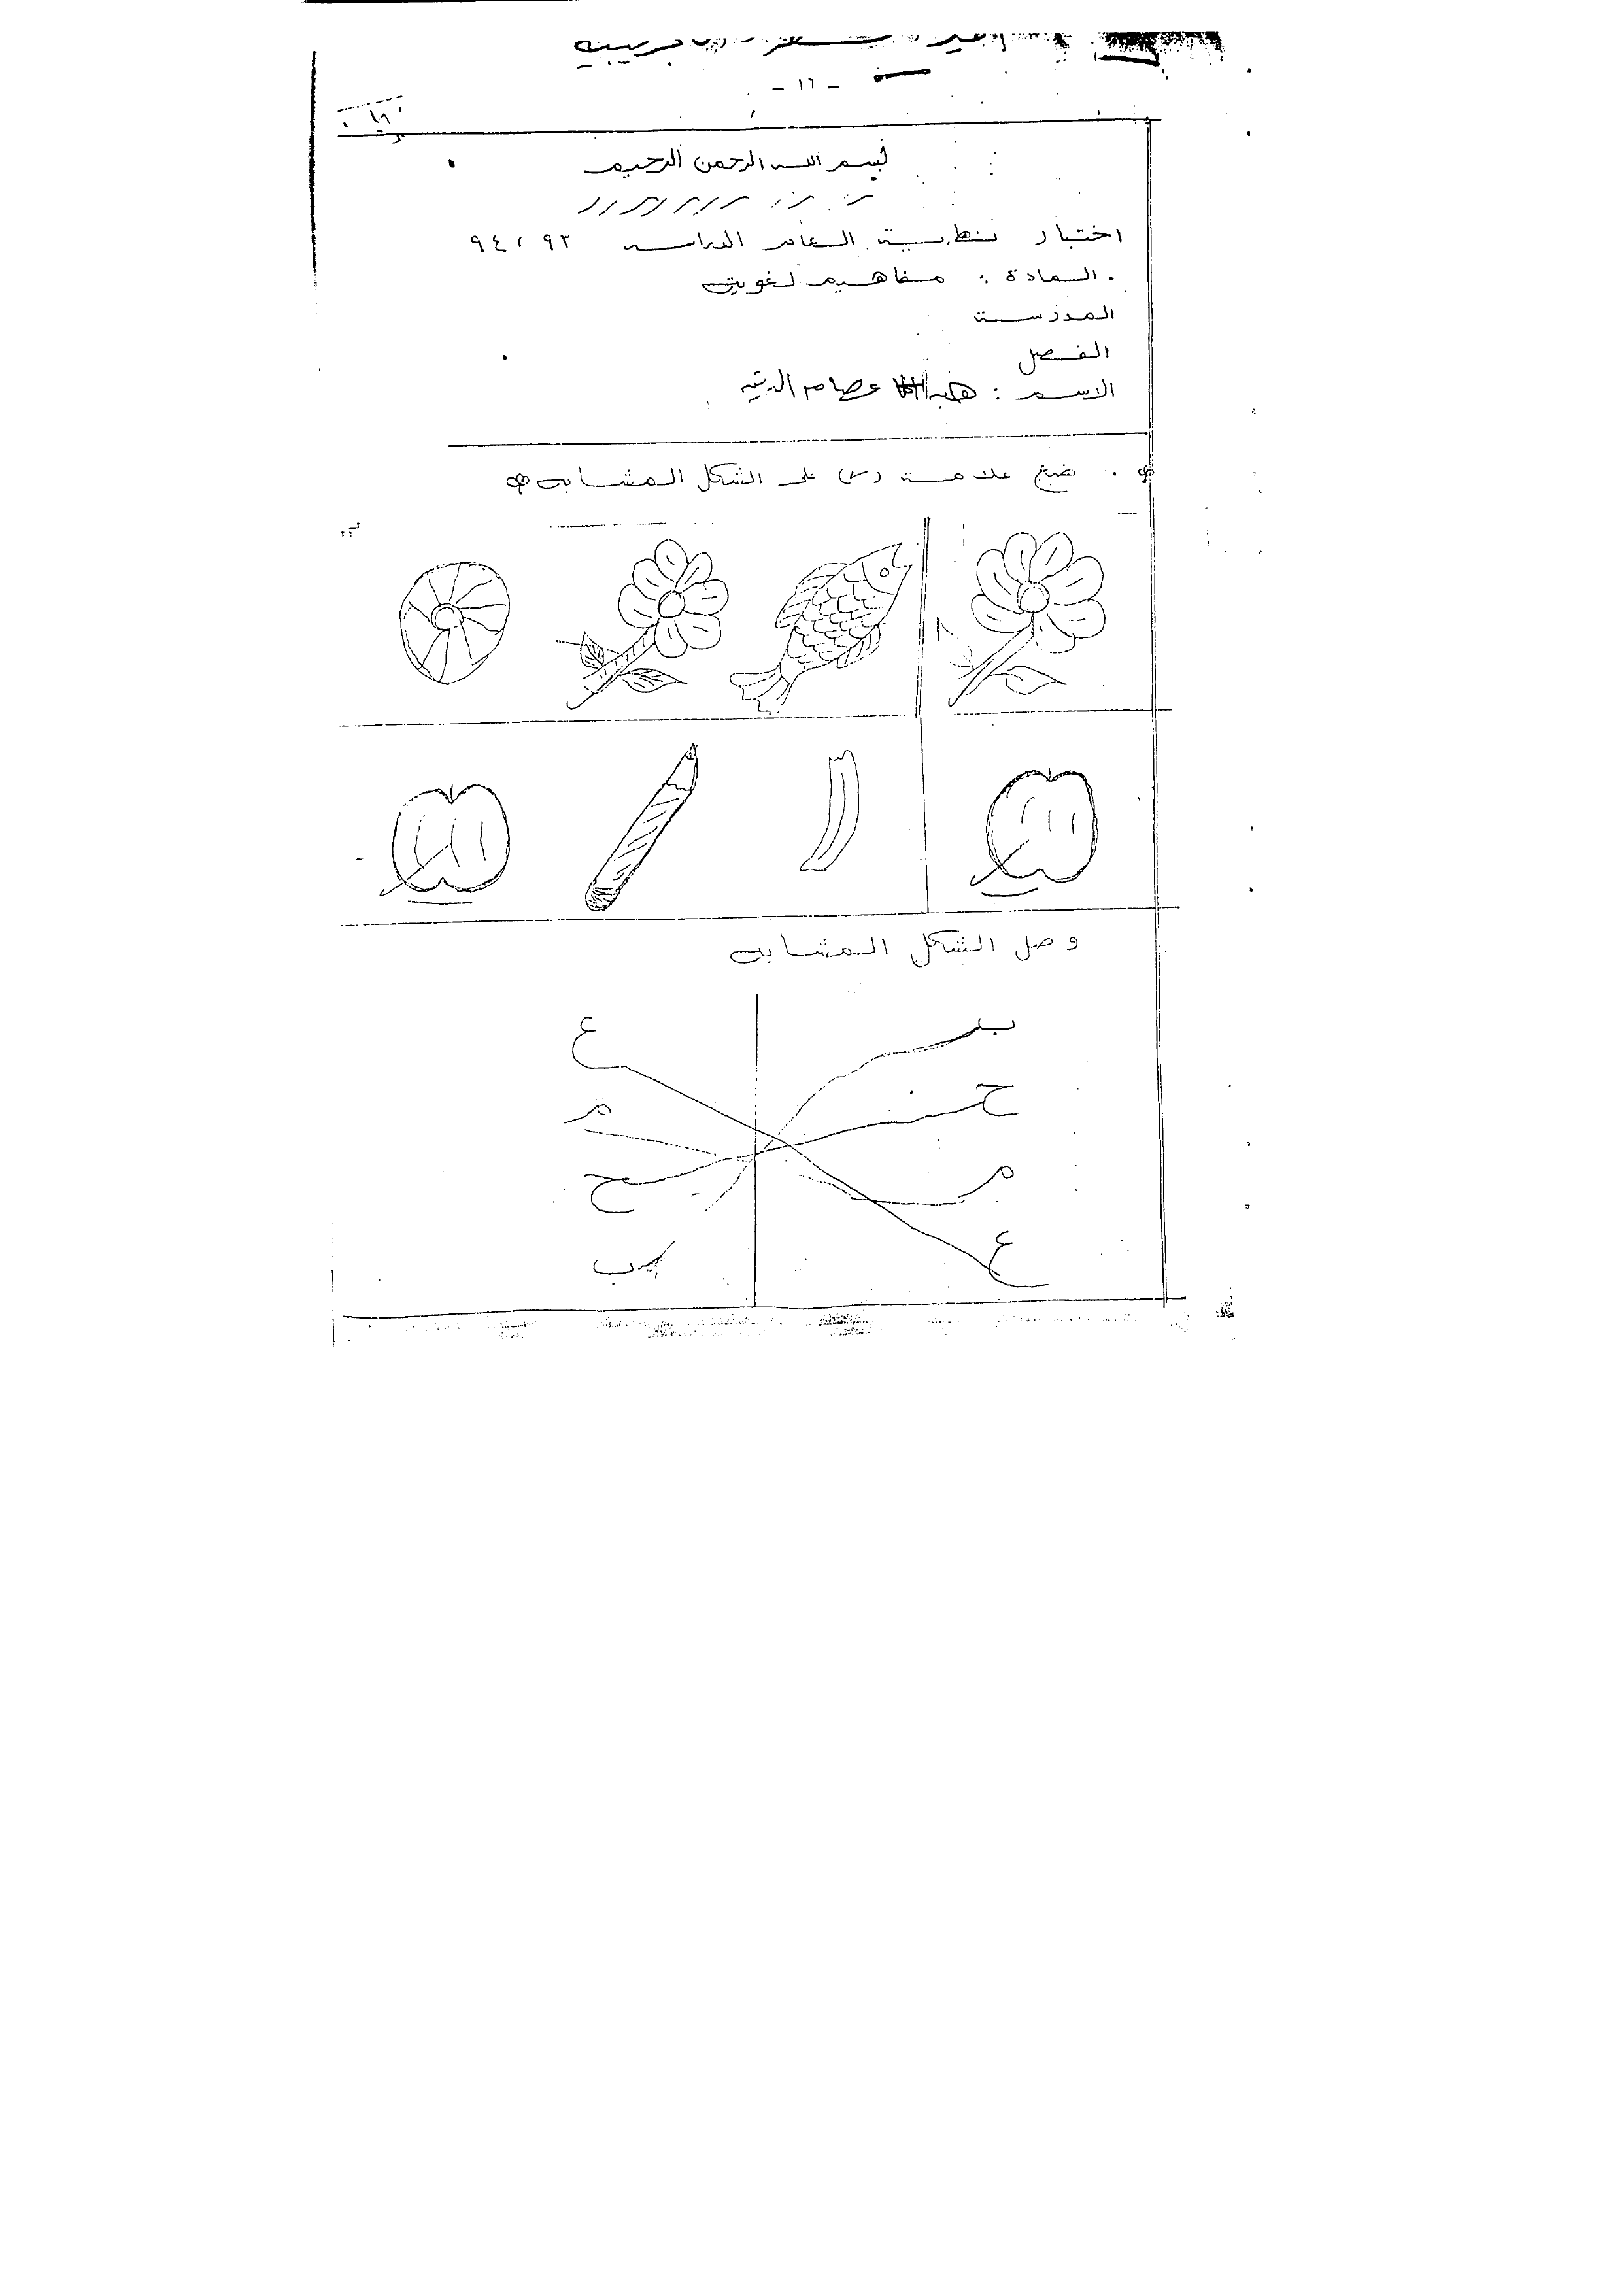 - ١٦ -
بسم الله الرحمن الرحيم
اختبار نهاية العام الدراسي ٩٣ / ٩٤
المادة : مفاهيم لغوية
المدرسة
الفصل
الاسم : هبه عصام الدين
ضع علامة (✓) على الشكل المشابه
وصل الشكل المشابه
بـ ع
حـ مـ
مـ ح
ع ب